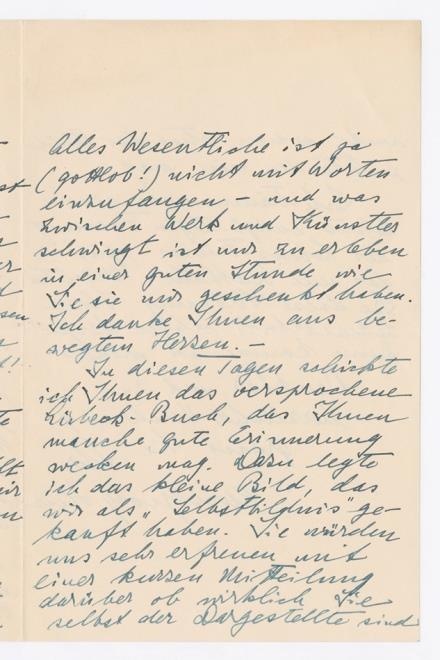 Alles Wesentliche ist ja
(gottlob!) nicht mit Worten
einzufangen – und was
zwischen Werk und Künstler
schwingt ist nur zu erleben
in einer guten Stunde wie
Sie sie mir geschenkt haben.
Ich danke Ihnen aus be-
wegtem Herzen. –
In diesen Tagen schickte
ich Ihnen das versprochene
Buch, das Ihnen
manche gute Erinnerung
wecken mag. Dazu legte
ich das kleine Bild, das
wir als „Selbstbildnis" ge-
kauft haben. Sie würden
uns sehr erfreuen mit
einer kurzen Mitteilung
darüber ob wirklich Sie
selbst der Dargestellte sind